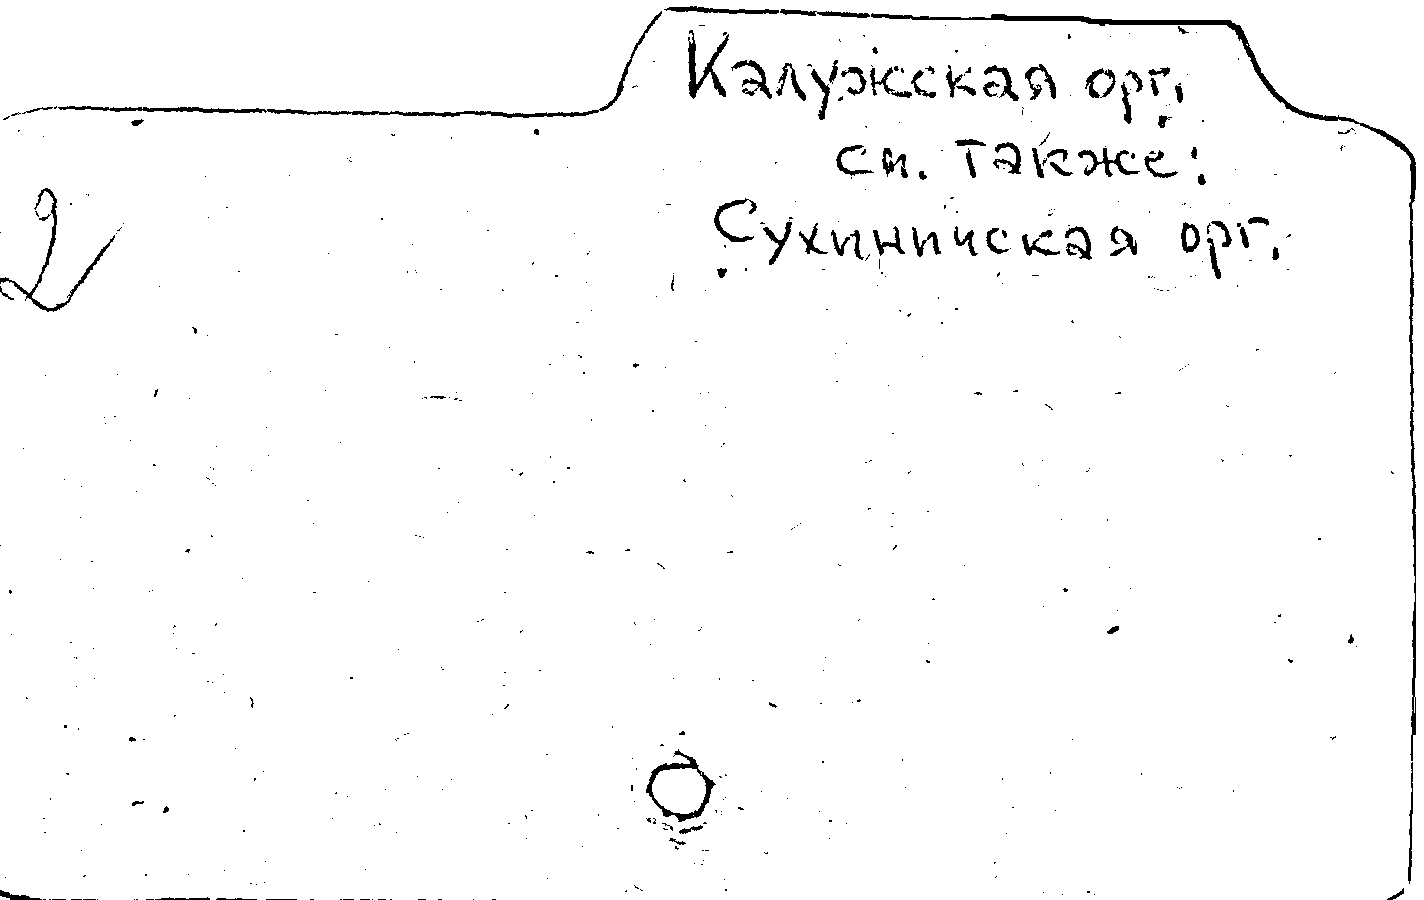 Калужская орг.
см. также:
Сухиничская орг.
2